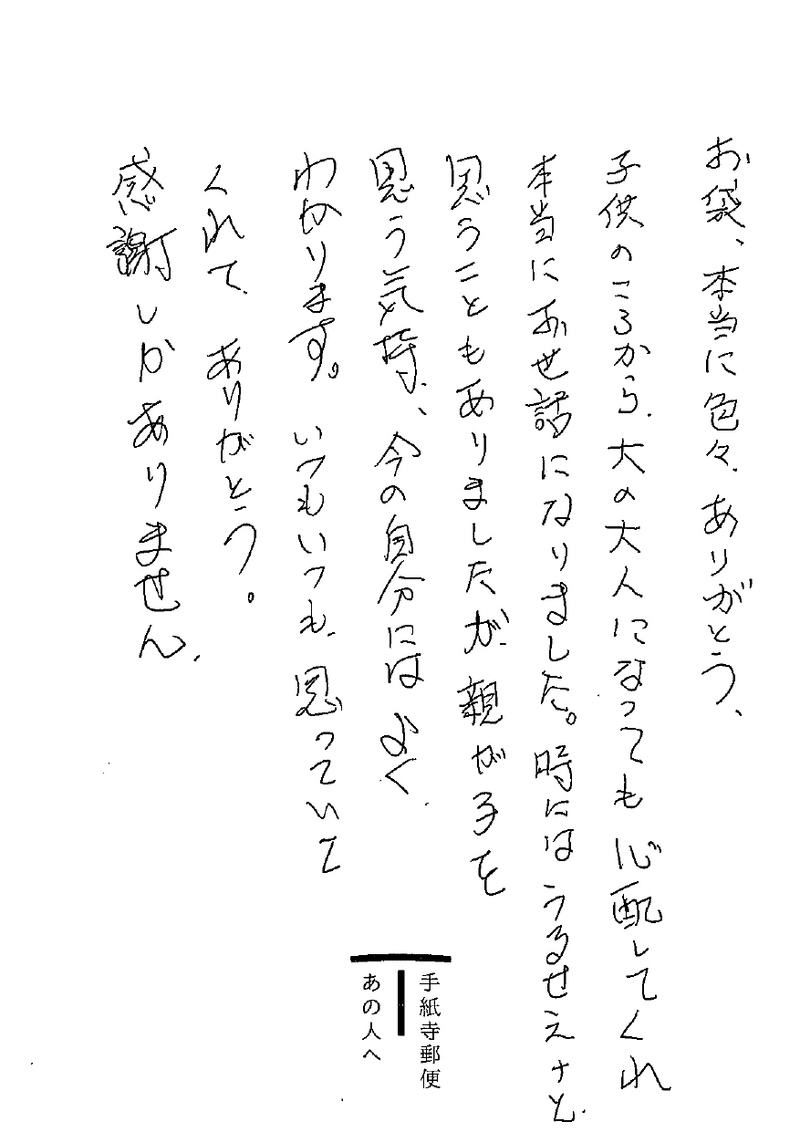 お袋、本当に色々、ありがとう、
子供のころから、大の大人になっても心配してくれ
本当にお世話になりました。時にはうるせえナと、
思うこともありましたが、親が子を
思う気持、今の自分にはよく、
わかります。いつもいつも、思っていて
くれて、ありがとう。
感謝しかありません、
手紙寺郵便
あの人へ